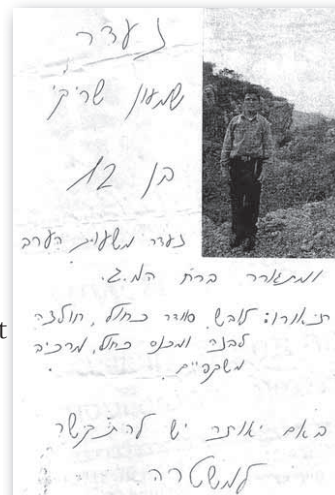 נעדר
שמעון שריקי
בן 12
נעדר משעות הערב
ומתגורר ברח המ.ג.
תיאורו: לובש סודר כחול, חולצה
לבנה ומכנס כחול, מרכיב
משקפיים
באם יאותר יש להתקשר
למשטרה
t